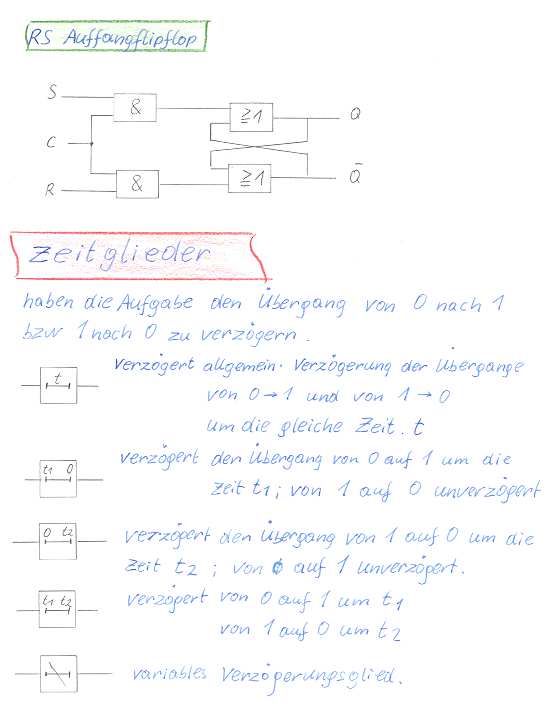 RS Auffangflipflop
S
&
≧1
Q
C
R
&
≧1
Q̄
Zeitglieder
haben die Aufgabe den Übergang von 0 nach 1
bzw 1 nach 0 zu verzögern.
t
verzögert allgemein. Verzögerung der Übergänge
von 0→1 und von 1→0
um die gleiche Zeit. t
t1 0
verzögert den Übergang von 0 auf 1 um die
Zeit t1; von 1 auf 0 unverzögert
0 t2
verzögert den Übergang von 1 auf 0 um die
Zeit t2; von 0 auf 1 unverzögert.
t1 t2
verzögert von 0 auf 1 um t1
von 1 auf 0 um t2
variables Verzögerungsglied.